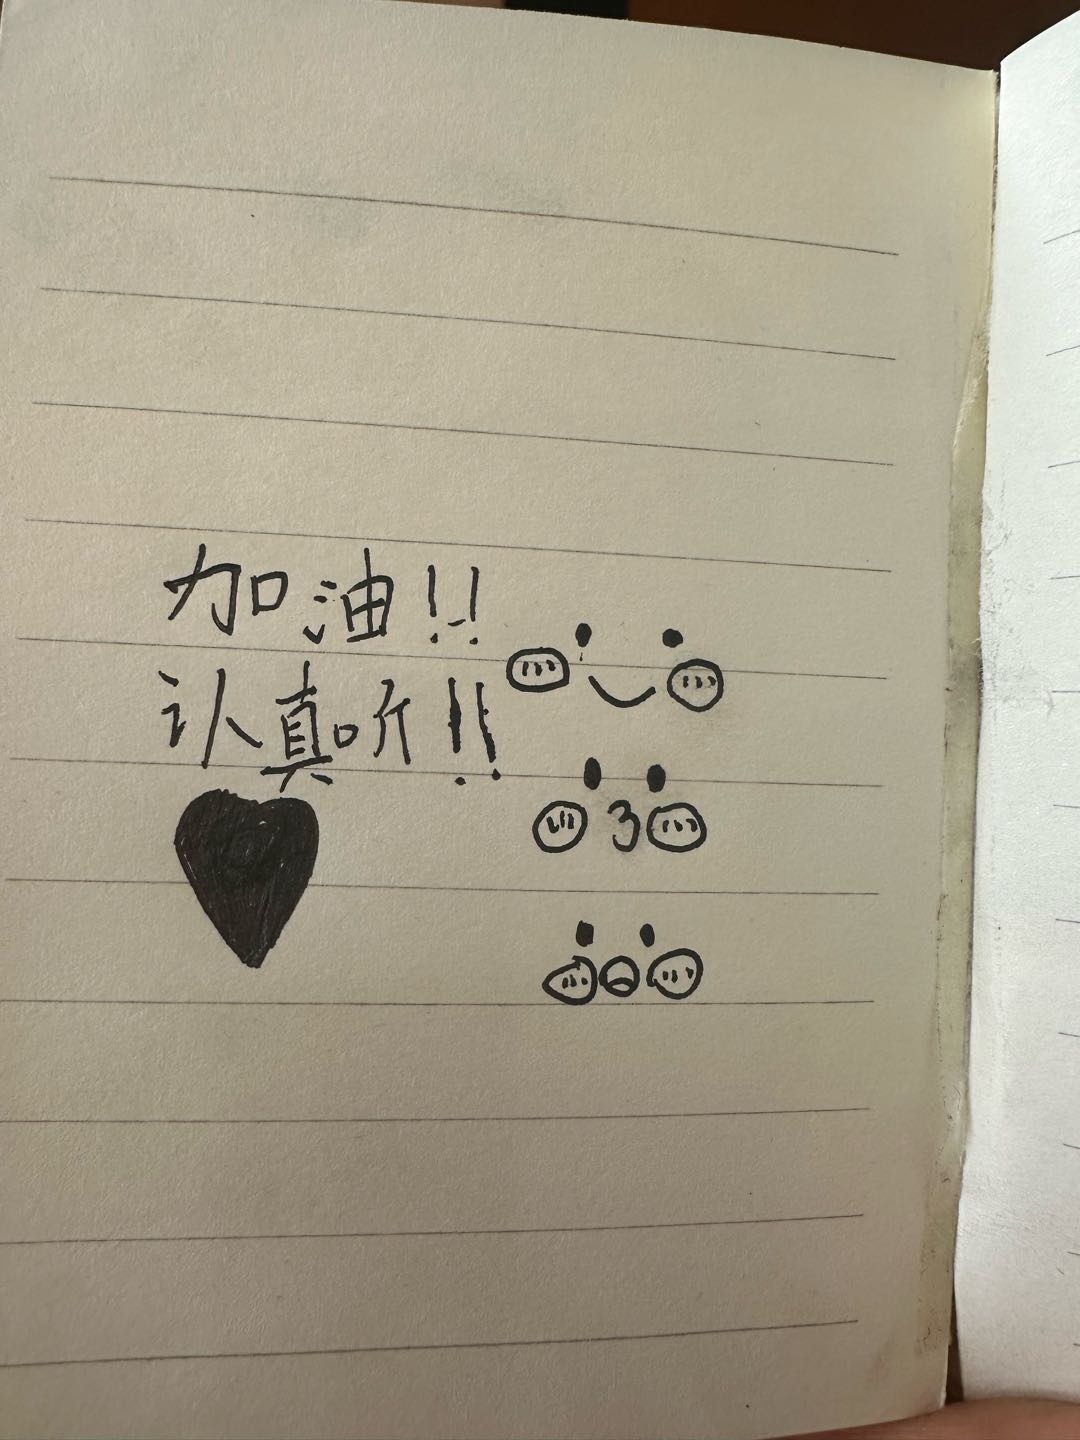 加油!!
认真听!!